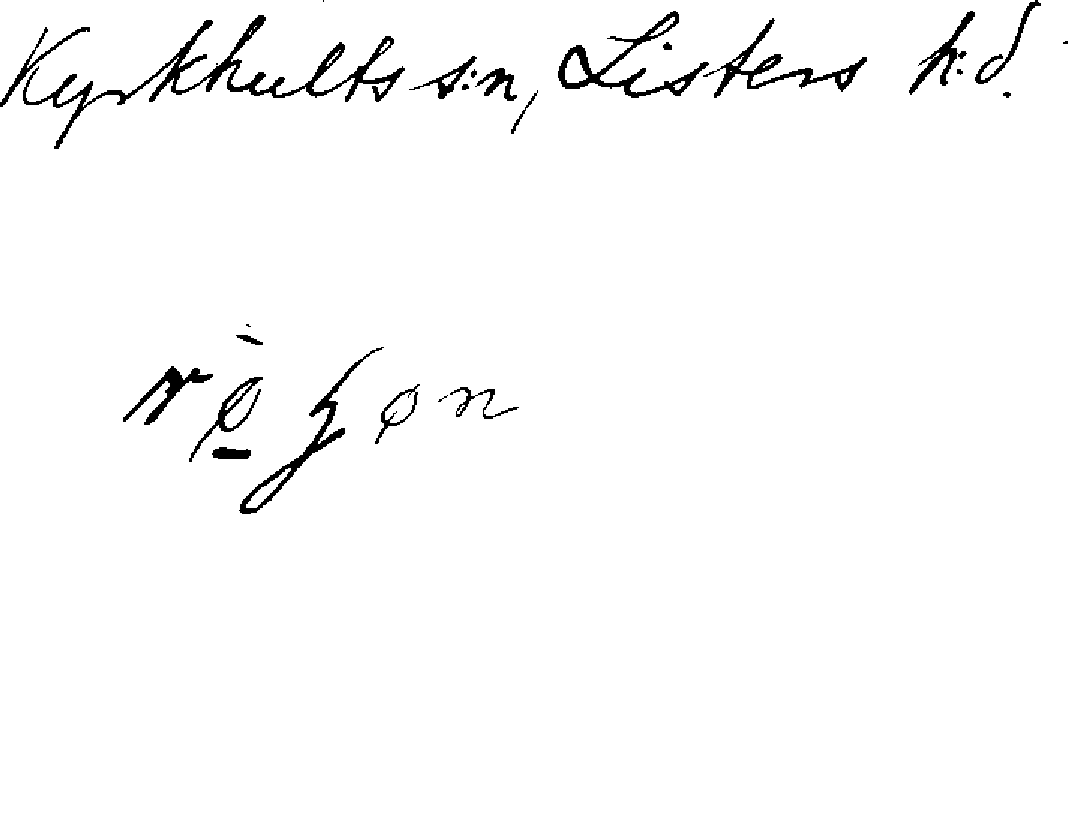 Kyrkhults s:n, Listers h:d.
rø̱̀ʒøn